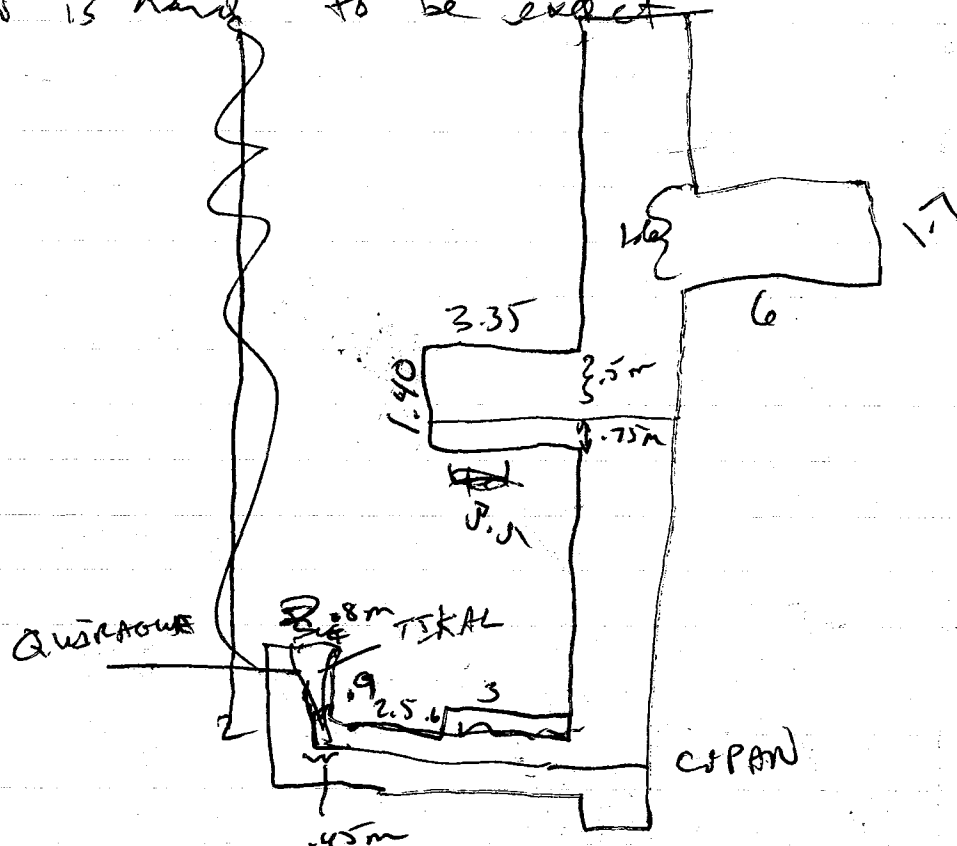 is hard to be exact
1.7
6
3.35
1.40
.5m
.75m
5.5
.8m
QUIRAGUA
TIKAL
.9
2.5
.6
3
COPAN
.45m